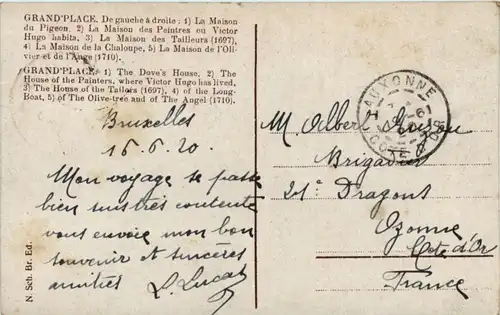 GRAND'PLACE. De gauche à droite : 1) La Maison
du Pigeon, 2) La Maison des Peintres ou Victor
Hugo habita, 3) La Maison des Tailleurs (1697),
4) La Maison de la Chaloupe, 5) La Maison de l'Oli-
vier et de l'Ange (1710).
GRAND'PLACE. 1) The Dove's House, 2) The
House of the Painters, where Victor Hugo has lived,
3) The House of the Tailors (1697), 4) of the Long-
Boat, 5) of The Olive-tree and of The Angel (1710).
Bruxelles
16.6.20.
Mon voyage se passe
bien suis très contente
vous envoie mon bon
souvenir et sincères
amitiés L. Lucas
N. Sch. Br. Ed.
AUXONNE
COTE D'OR
M. Albert
Brigadier
21e Dragons
Ozonne
Cote d'Or
France